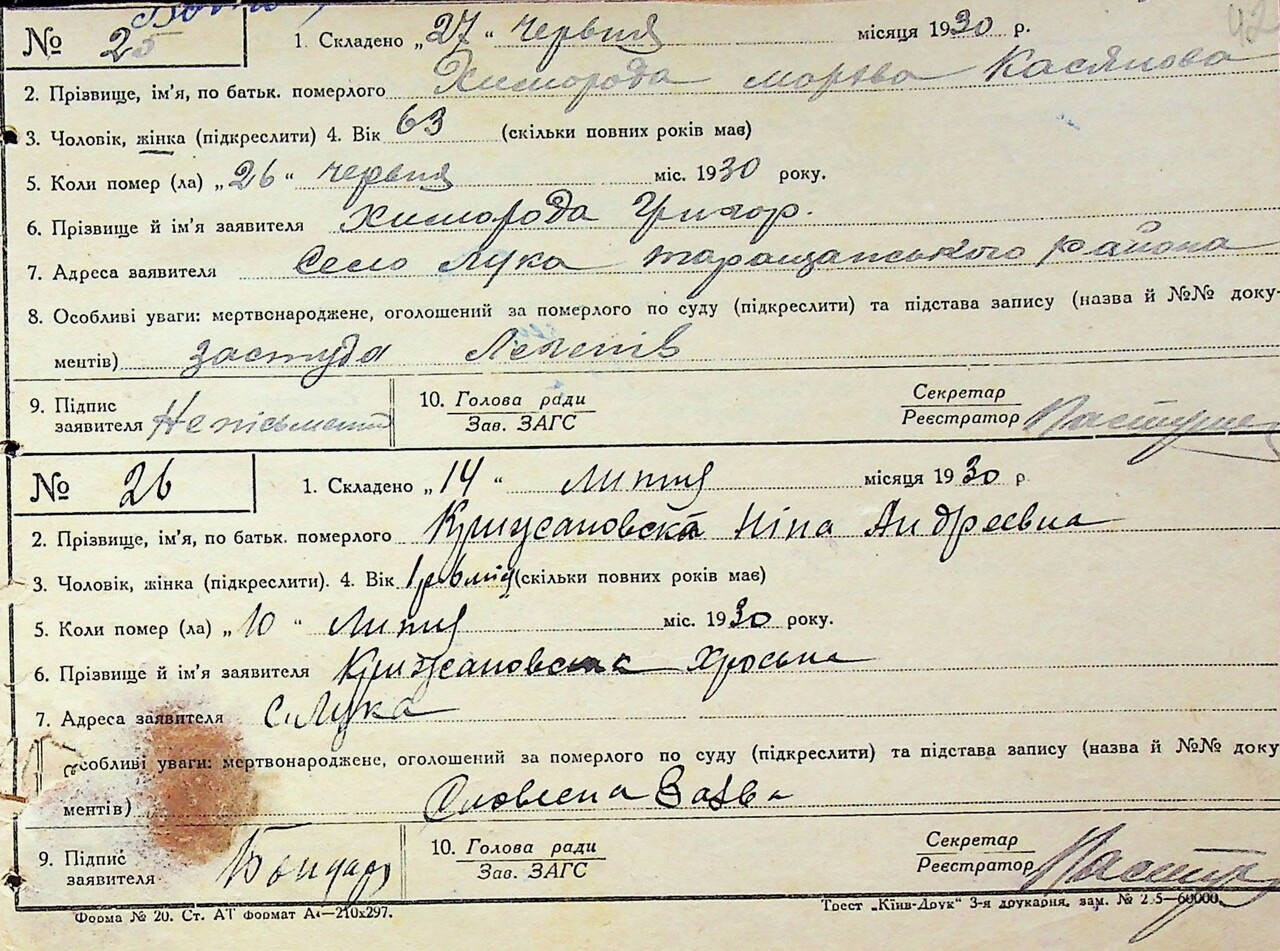 42
№ 25 1. Складено „27“ червня місяця 1930 р.
2. Прізвище, ім'я, по батьк. померлого Химорода Касянова
3. Чоловік, жінка (підкреслити) 4. Вік 63 (скільки повних років має)
5. Коли помер (ла) „26“ червня міс. 1930 року.
6. Прізвище й ім'я заявителя Химорода Григор.
7. Адреса заявителя Село Лука таращанського района
8. Особливі уваги: мертвонароджене, оголошений за померлого по суду (підкреслити) та підстава запису (назва й №№ доку-
ментів) застуда
9. Підпис заявителя Неписьмений 10. Голова ради Зав. ЗАГС Секретар Реєстратор
№ 26 1. Складено „14“ липня місяця 1930 р
2. Прізвище, ім'я, по батьк. померлого Ніна Андреевна
3. Чоловік, жінка (підкреслити). 4. Вік 1 (скільки повних років має)
5. Коли помер (ла) „10“ липня міс. 1930 року.
6. Прізвище й ім'я заявителя
7. Адреса заявителя с. Лука
особливі уваги: мертвонароджене, оголошений за померлого по суду (підкреслити) та підстава запису (назва й №№ доку
ментів) Словесна заява
9. Підпис заявителя Бондар 10. Голова ради Зав. ЗАГС Секретар Реєстратор
Форма № 20. Ст. АТ Формат А₄—210х297. Трест „Київ-Друк“ 3-я друкарня, зам. № 2 5—60000.